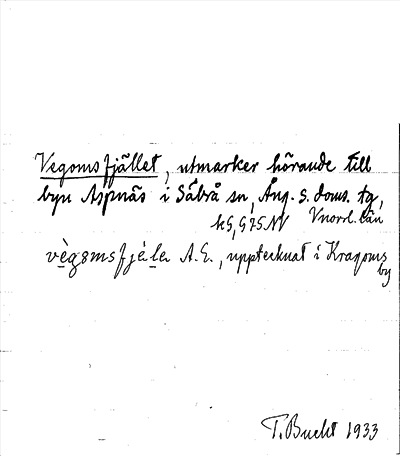 Vegomsfjället, utmarker hörande till
byn Aspnäs i Säbrå sn, Ång. s. doms. tg,
kG, G75NV Vnorrl. län
vègomsfjéle A.E., upptecknat i Kragoms
by
T. Bucht 1933